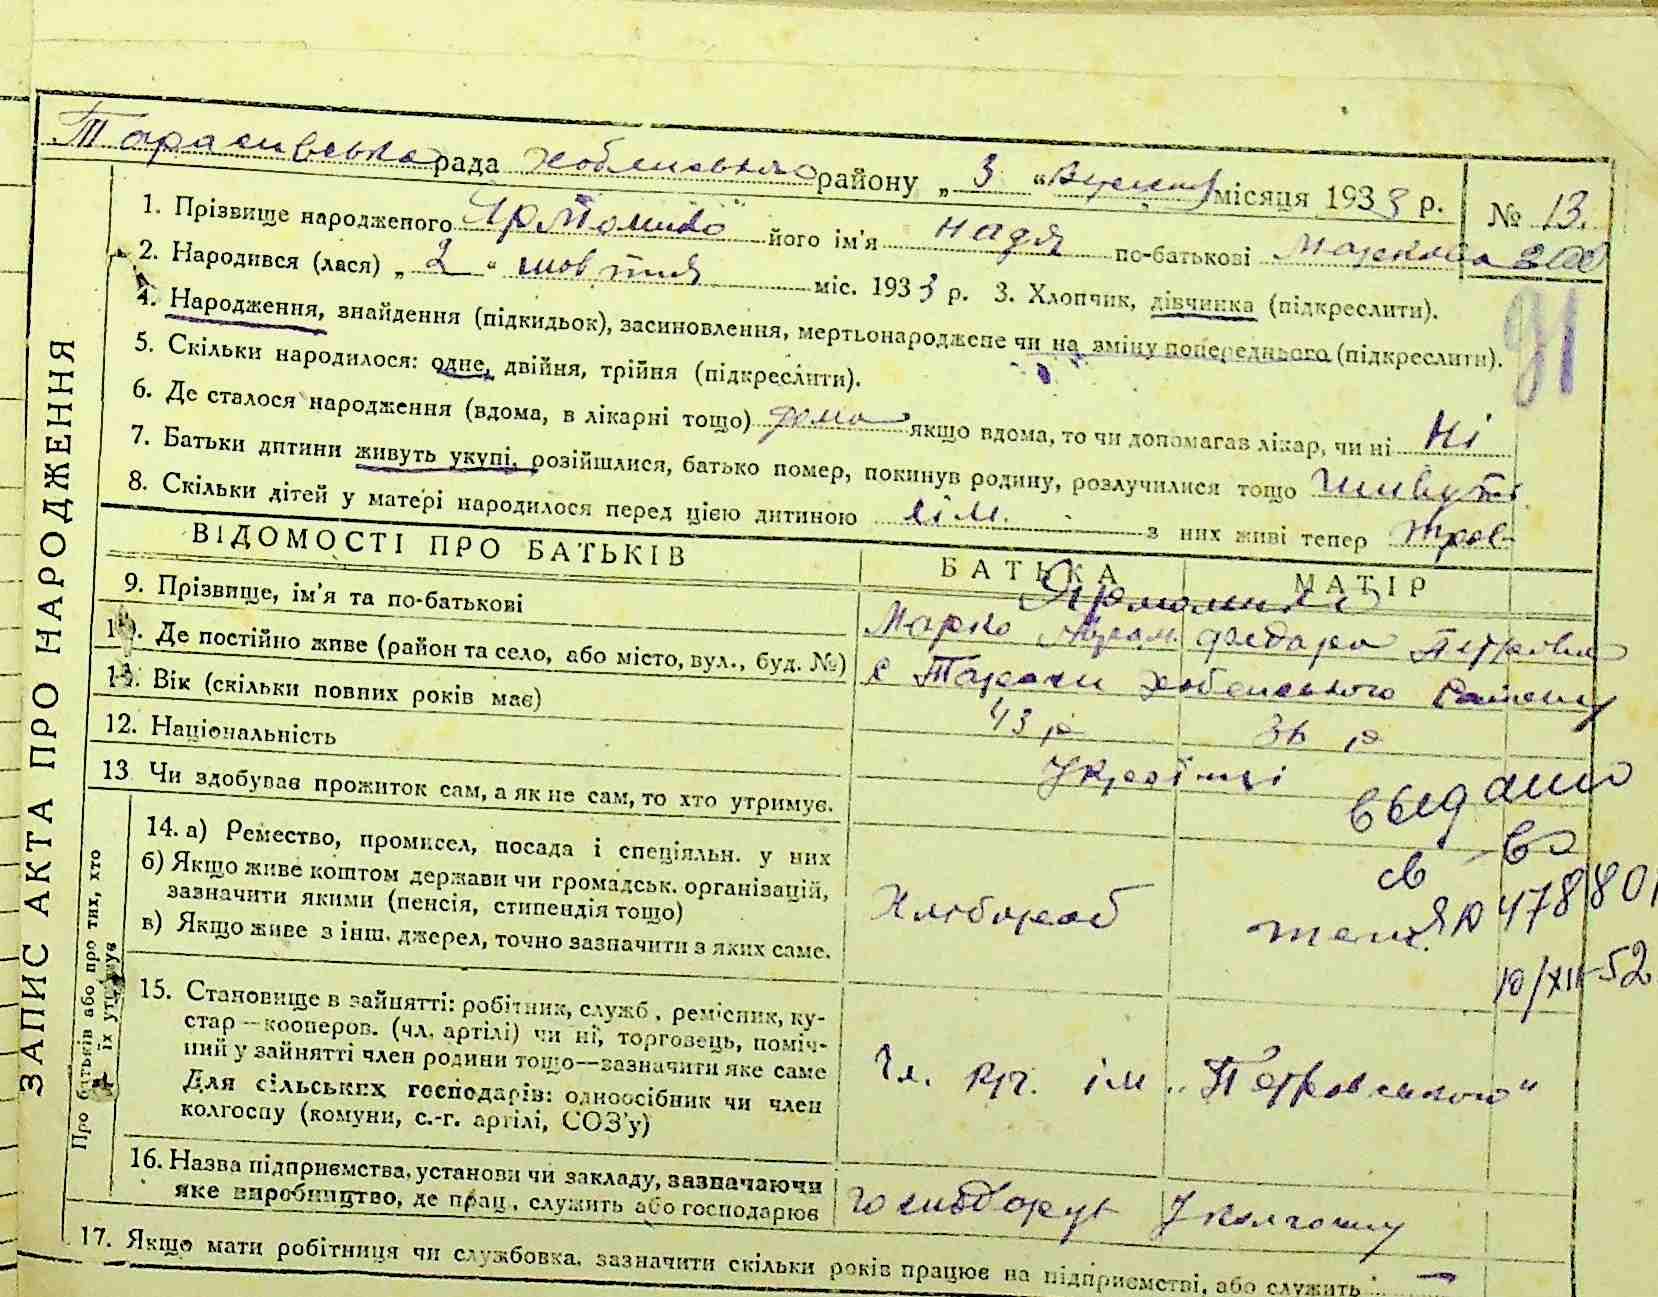 Тарасівська рада Хабенського району „ 3 “ місяця 1933 р. № 13.
1. Прізвище народженого його ім'я Надя по-батькові
2. Народився (лася) „ 2 “ жовтня міс. 1933 р. 3. Хлопчик, дівчинка (підкреслити).
91
4. Народження, знайдення (підкидьок), засиновлення, мертьонароджене чи на зміцу попереднього (підкреслити).
5. Скільки народилося: одне, двійня, трійня (підкреслити).
6. Де сталося народження (вдома, в лікарні тощо) дома якщо вдома, то чи допомагав лікар, чи ні Ні
7. Батьки дитини живуть укупі, розійшлися, батько помер, покинув родину, розлучилися тощо живуть
8. Скільки дітей у матері народилося перед цією дитиною з них живі тепер
ЗАПИС АКТА ПРО НАРОДЖЕННЯ
ВІДОМОСТІ ПРО БАТЬКІВ БАТЬКА МАТІР
9. Прізвище, ім'я та по-батькові
Марко Федора Петровна
10. Де постійно живе (район та село, або місто, вул., буд. №)
с Тараси Хабенського району
11. Вік (скільки повних років має) 43 р 36 р
12. Національність Українці
13 Чи здобував прожиток сам, а як не сам, то хто утримує.
выдано
св - во
ЯЮ 478801
10/XII-52
Про батьків або про тих, хто їх утримує
14. а) Ремество, промисел, посада і спеціяльн. у них
б) Якщо живе коштом держави чи громадськ. організацій,
зазначити якими (пенсія, стипендія тощо)
в) Якщо живе з інш. джерел, точно зазначити з яких саме.
Хлібороб
15. Становище в зайнятті: робітник, служб., ремісник, ку-
стар—кооперов. (чл. артілі) чи ні, торговець, поміч-
ний у зайнятті член родини тощо—зазначити яке саме
Для сільських господарів: одноосібник чи член
колгоспу (комуни, с.-г. артілі, СОЗ'у)
Чл. ім „Петровського“
16. Назва підприємства, установи чи закладу, зазначаючи
яке виробництво, де прац., служить або господарює
у колгоспу
17. Якщо мати робітниця чи службовка, зазначити скільки років працює на підприємстві, або служить